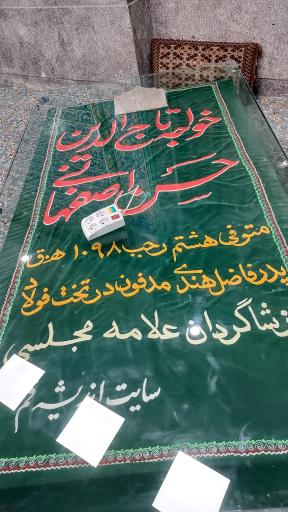 خواجه تاج الدین
حسن اصفهانی
متوفی هشتم رجب ۱۰۹۸ ه.ق
پدر فاضل هندی مدفون در تخت فولاد
از شاگردان علامه مجلسی
سایت اندیشه قم